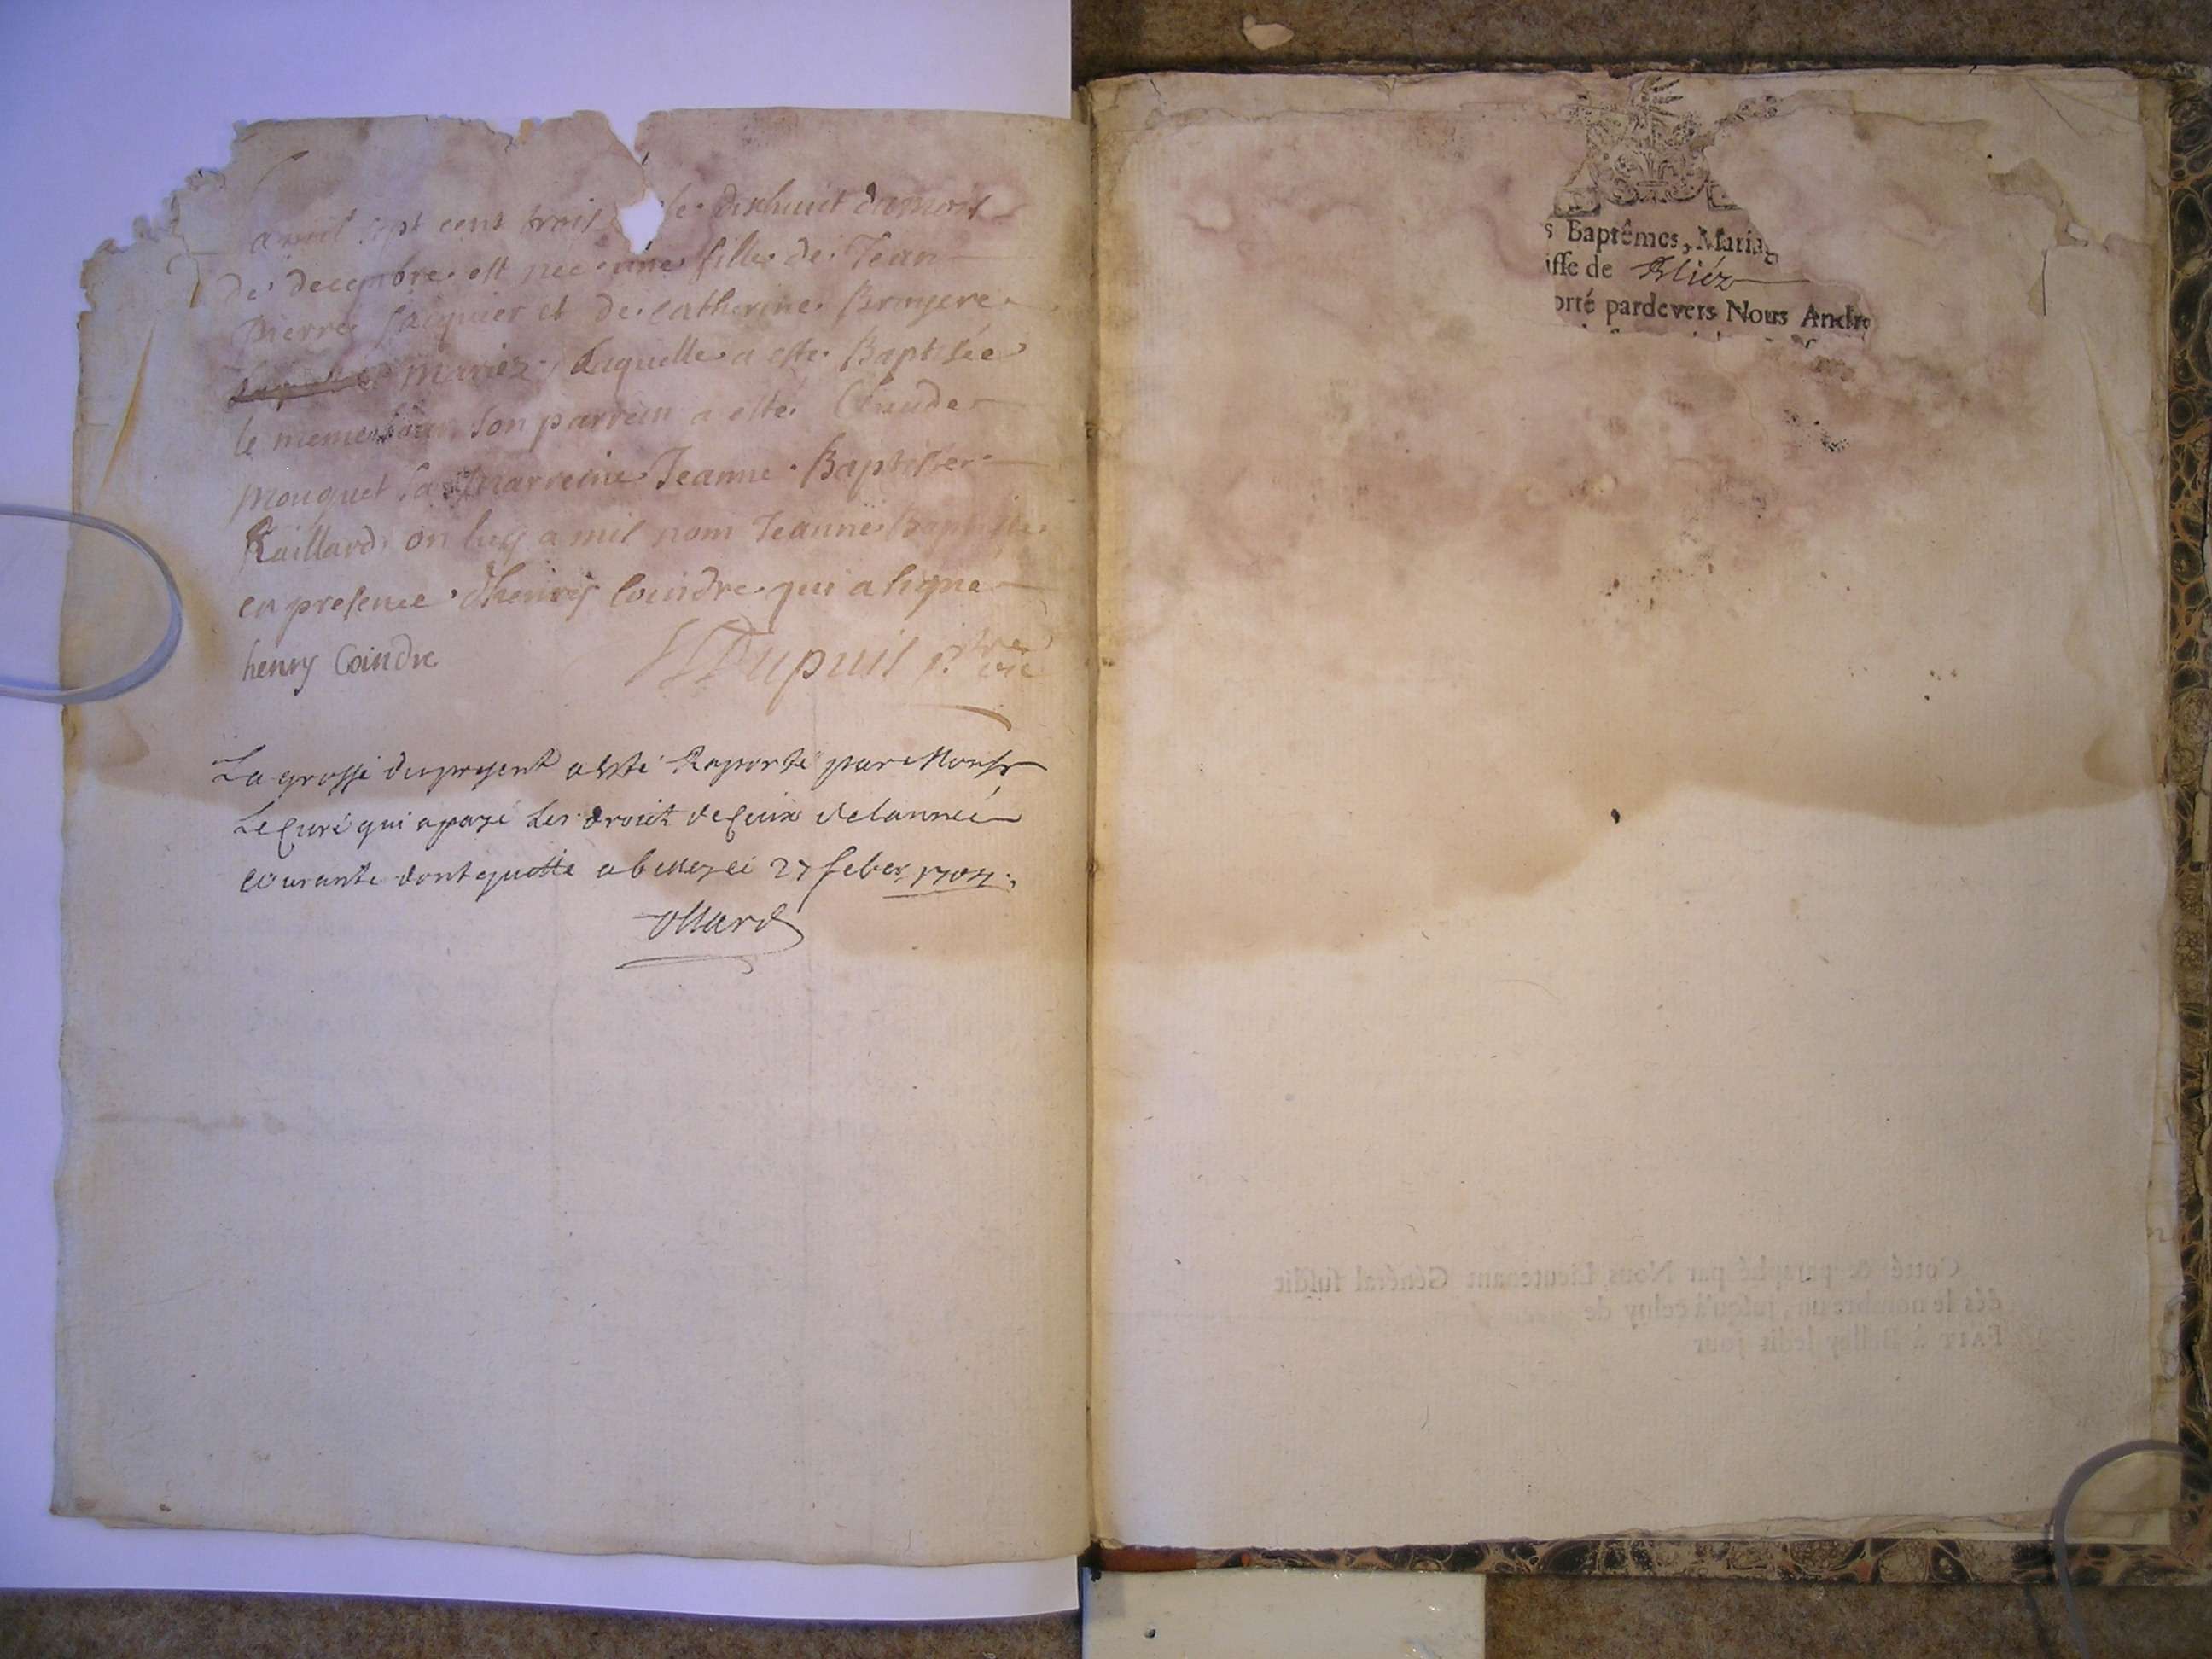 a mil sept cens trois le dixhuict du mois
de decembre est nee une fille de Jean
Pierre Jacquier et de catherine Bruyere
mariez laquelle a este Baptisée
le meme jour son parrein a esté Claude
Mouquet sa Marreine Jeanne Baptiste
Raillard on luy a mis nom Jeanne Baptiste
en presence dhenry Coindre qui a signé
henry Coindre Dupuis ptre vic
La grosse du present a esté Raporté par Monsr
Le Curé qui a payé les droict de ceux de lannée
courante dont quitte a belley ce 27 feber 1704.
ollard
s Baptêmes, Mariag
isse de
orté pardevers Nous André
Cotté & paraphé par Nous Lieutenant Général susdit
dés le nombre un, jusqu'à celuy de
FAIT à Belley ledit jour